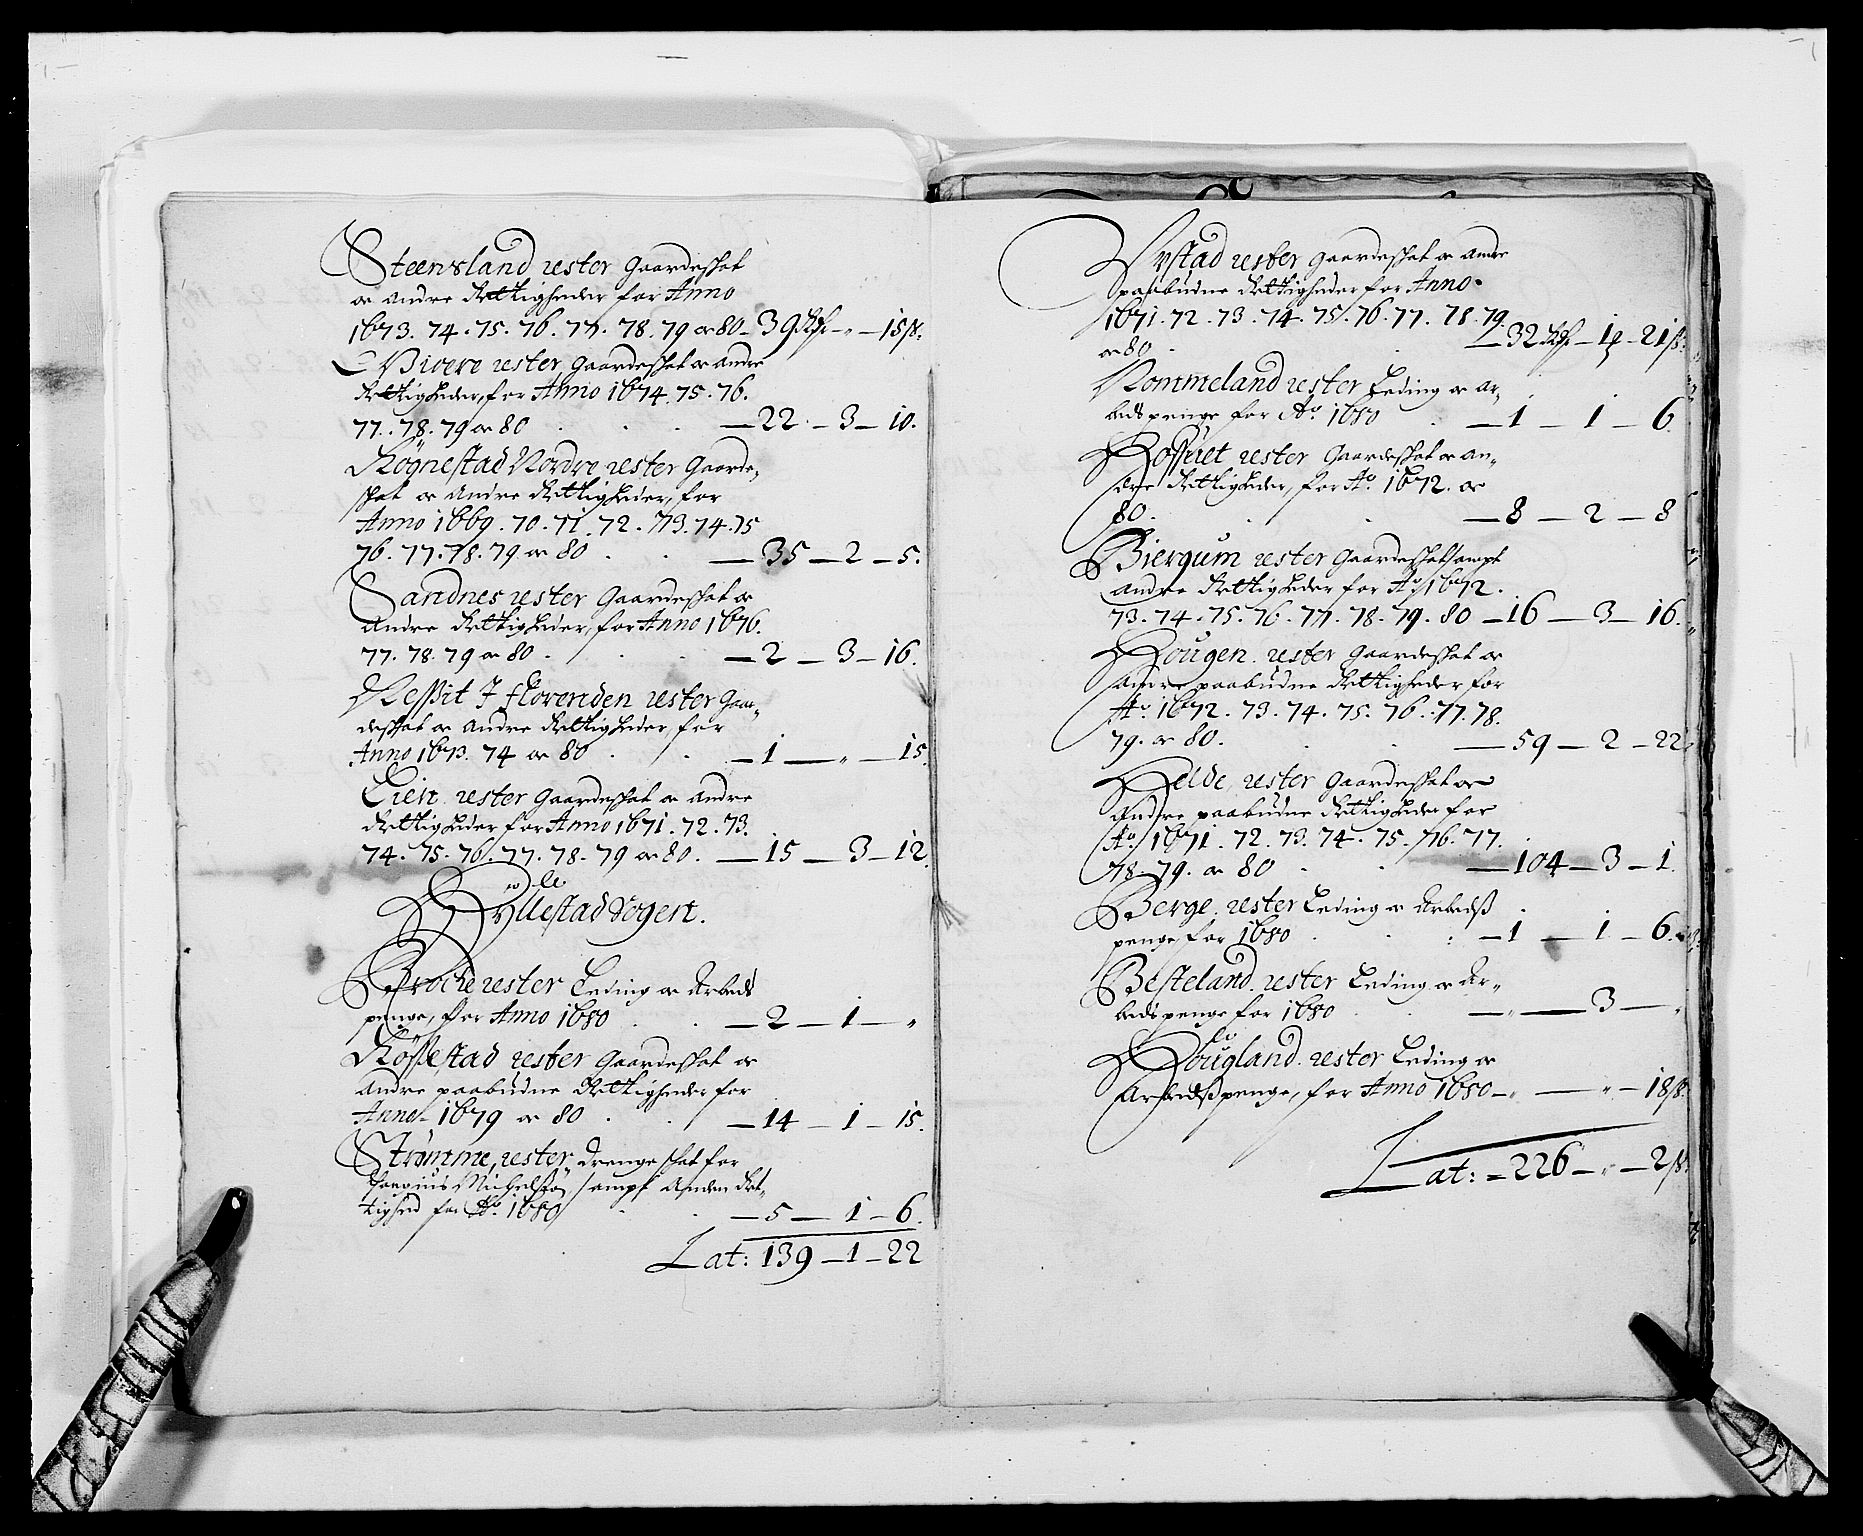 Steensland rester Gaardeskat
oc andre Rettigheder for Anno
1673. 74. 75. 76. 77. 78. 79 oc 80 – 39 Rdr – „ – 15 ß.
Vivere rester Gaardeskat oc andre
Rettigheder, for Anno 1674. 75. 76.
77. 78. 79 oc 80 – 22 – 3 – 10.
Rögnestad Nordre rester Gaarde,
skat oc Andre Rettigheder, for
Anno 1669. 70. 71. 72. 73. 74. 75
76. 77. 78. 79 oc 80 – 35 – 2 – 5.
Sandnes rester Gaardeskat oc
Andre Rettigheder, for Anno 1676.
77. 78. 79 oc 80 – 2 – 3 – 16.
Nessit J florenden rester Gaar„
deskat oc Andre Rettigheder for
Anno 1673. 74 oc 80 – 1 – „ – 15.
Eien rester Gaardeskat oc Andre
Rettigheder for Anno 1671. 72. 73.
74. 75. 76. 77. 78. 79 oc 80. – 15 – 3 – 12.
Hyllestad Sogen.
Broche rester Leding oc Arbeds
penge, for Anno 1680 – 2 – 1 – „
Röslestad rester Gaardeskat oc
Andre paabudne Rettigheder for
Anno 1679 oc 80 – 14 – 1 – 15.
Strømme, rester, Drenge skat for
Michelsøn, sampt Anden Ret„
tighed for Ao. 1680 – 5 – 1 – 6.
Lat: 139 – 1 – 22
Rystad rester Gaardeskat oc Andre
paabudne Rettigheder for Anno
1671. 72. 73. 74. 75. 76. 77. 78. 79.
oc 80 – 32 Rdr – 1 – 21 ß.
Nommeland rester Leding oc Ar„
beds penge for Ao. 1680 – 1 – 1 – 6.
Rossuet rester Gaardeskat oc An„
dre Rettigheder, for Ao. 1672. oc
80. – 8 – 2 – 8
Biergum rester Gaardeskat sampt
Andre Rettigheder for Ao. 1672.
73. 74. 75. 76. 77. 78. 79. 80 – 16 – 3 – 16.
Hougen rester Gaardeskat oc
Andre paabudne Rettigheder for
Ao. 1672. 73. 74. 75. 76. 77. 78.
79. oc 80. – 59 – 2 – 22
Helde rester Gaardeskat oc
Andre paabudne Rettigheder for
Ao. 1671. 72. 73. 74. 75. 76. 77.
78. 79. oc 80 – 104 – 3 – 1.
Berge rester Leding oc Arbedß
penge for 1680 – 1 – 1 – 6.
Besteland rester Leding oc Ar„
beds penge for 1680 – „ – 3 – „
Hougland rester Leding oc
Arbedßpenge, for Anno 1680 – „ – „ – 18 ß.
Lat: – 226 – „ – 2 ß.